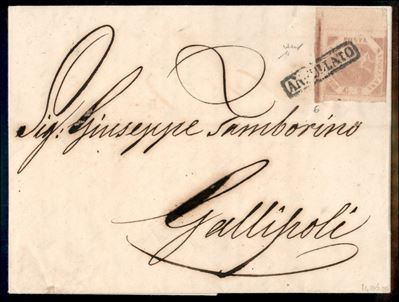 ANNULLATO
6
Sig: Giuseppe Tamborino
Gallipoli